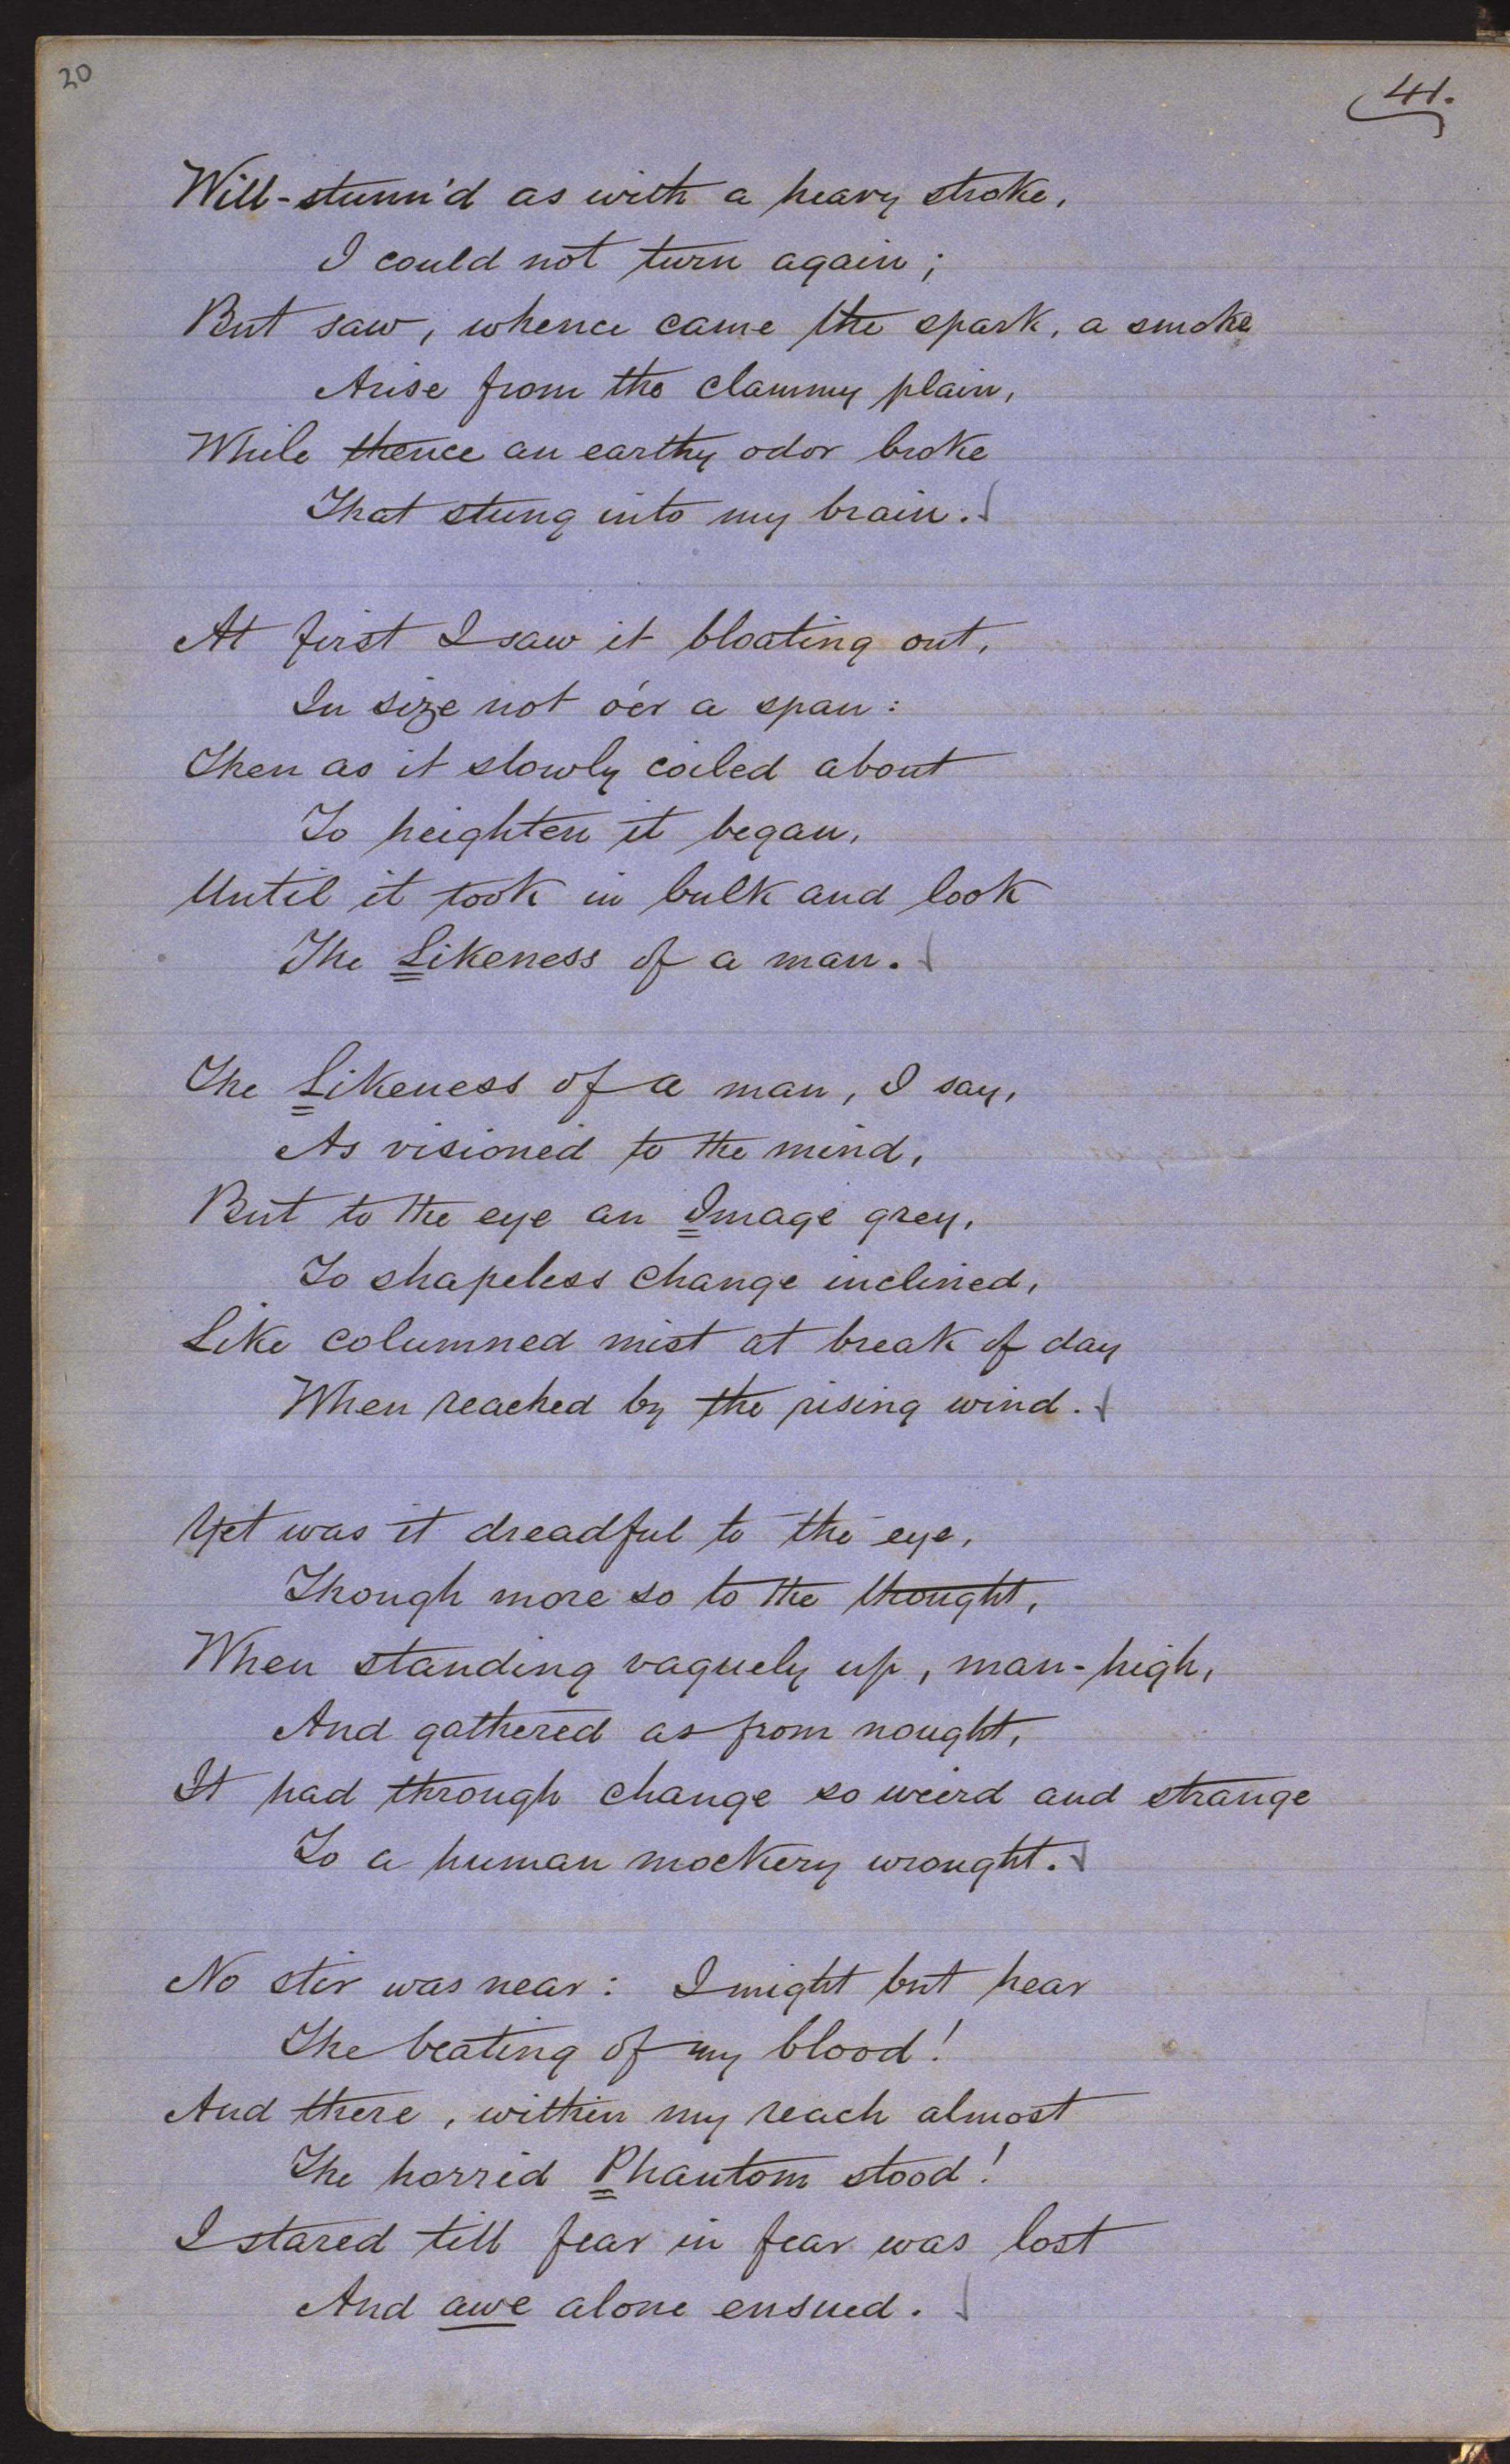 20
41.
Will-stunn'd as with a heavy stroke,
I could not turn again;
But saw, whence came the spark, a smoke
Arise from the clammy plain,
While thence an earthy odor broke
That stung into my brain.
At first I saw it bloating out,
In size not o'er a span:
Then as it slowly coiled about
To heighten it began,
Until it took in bulk and look
The Likeness of a man.
The Likeness of a man, I say,
As visioned to the mind,
But to the eye an Image grey,
To shapeless change inclined,
Like columned mist at break of day
When reached by the rising wind.
Yet was it dreadful to the eye,
Though more so to the thought,
When standing vaguely up, man-high,
And gathered as from nought,
It had through change so weird and strange
To a human mockery wrought.
No stir was near: I might but hear
The beating of my blood!
And there, within my reach almost
The horrid Phantom stood!
I stared till fear in fear was lost
And awe alone ensued.